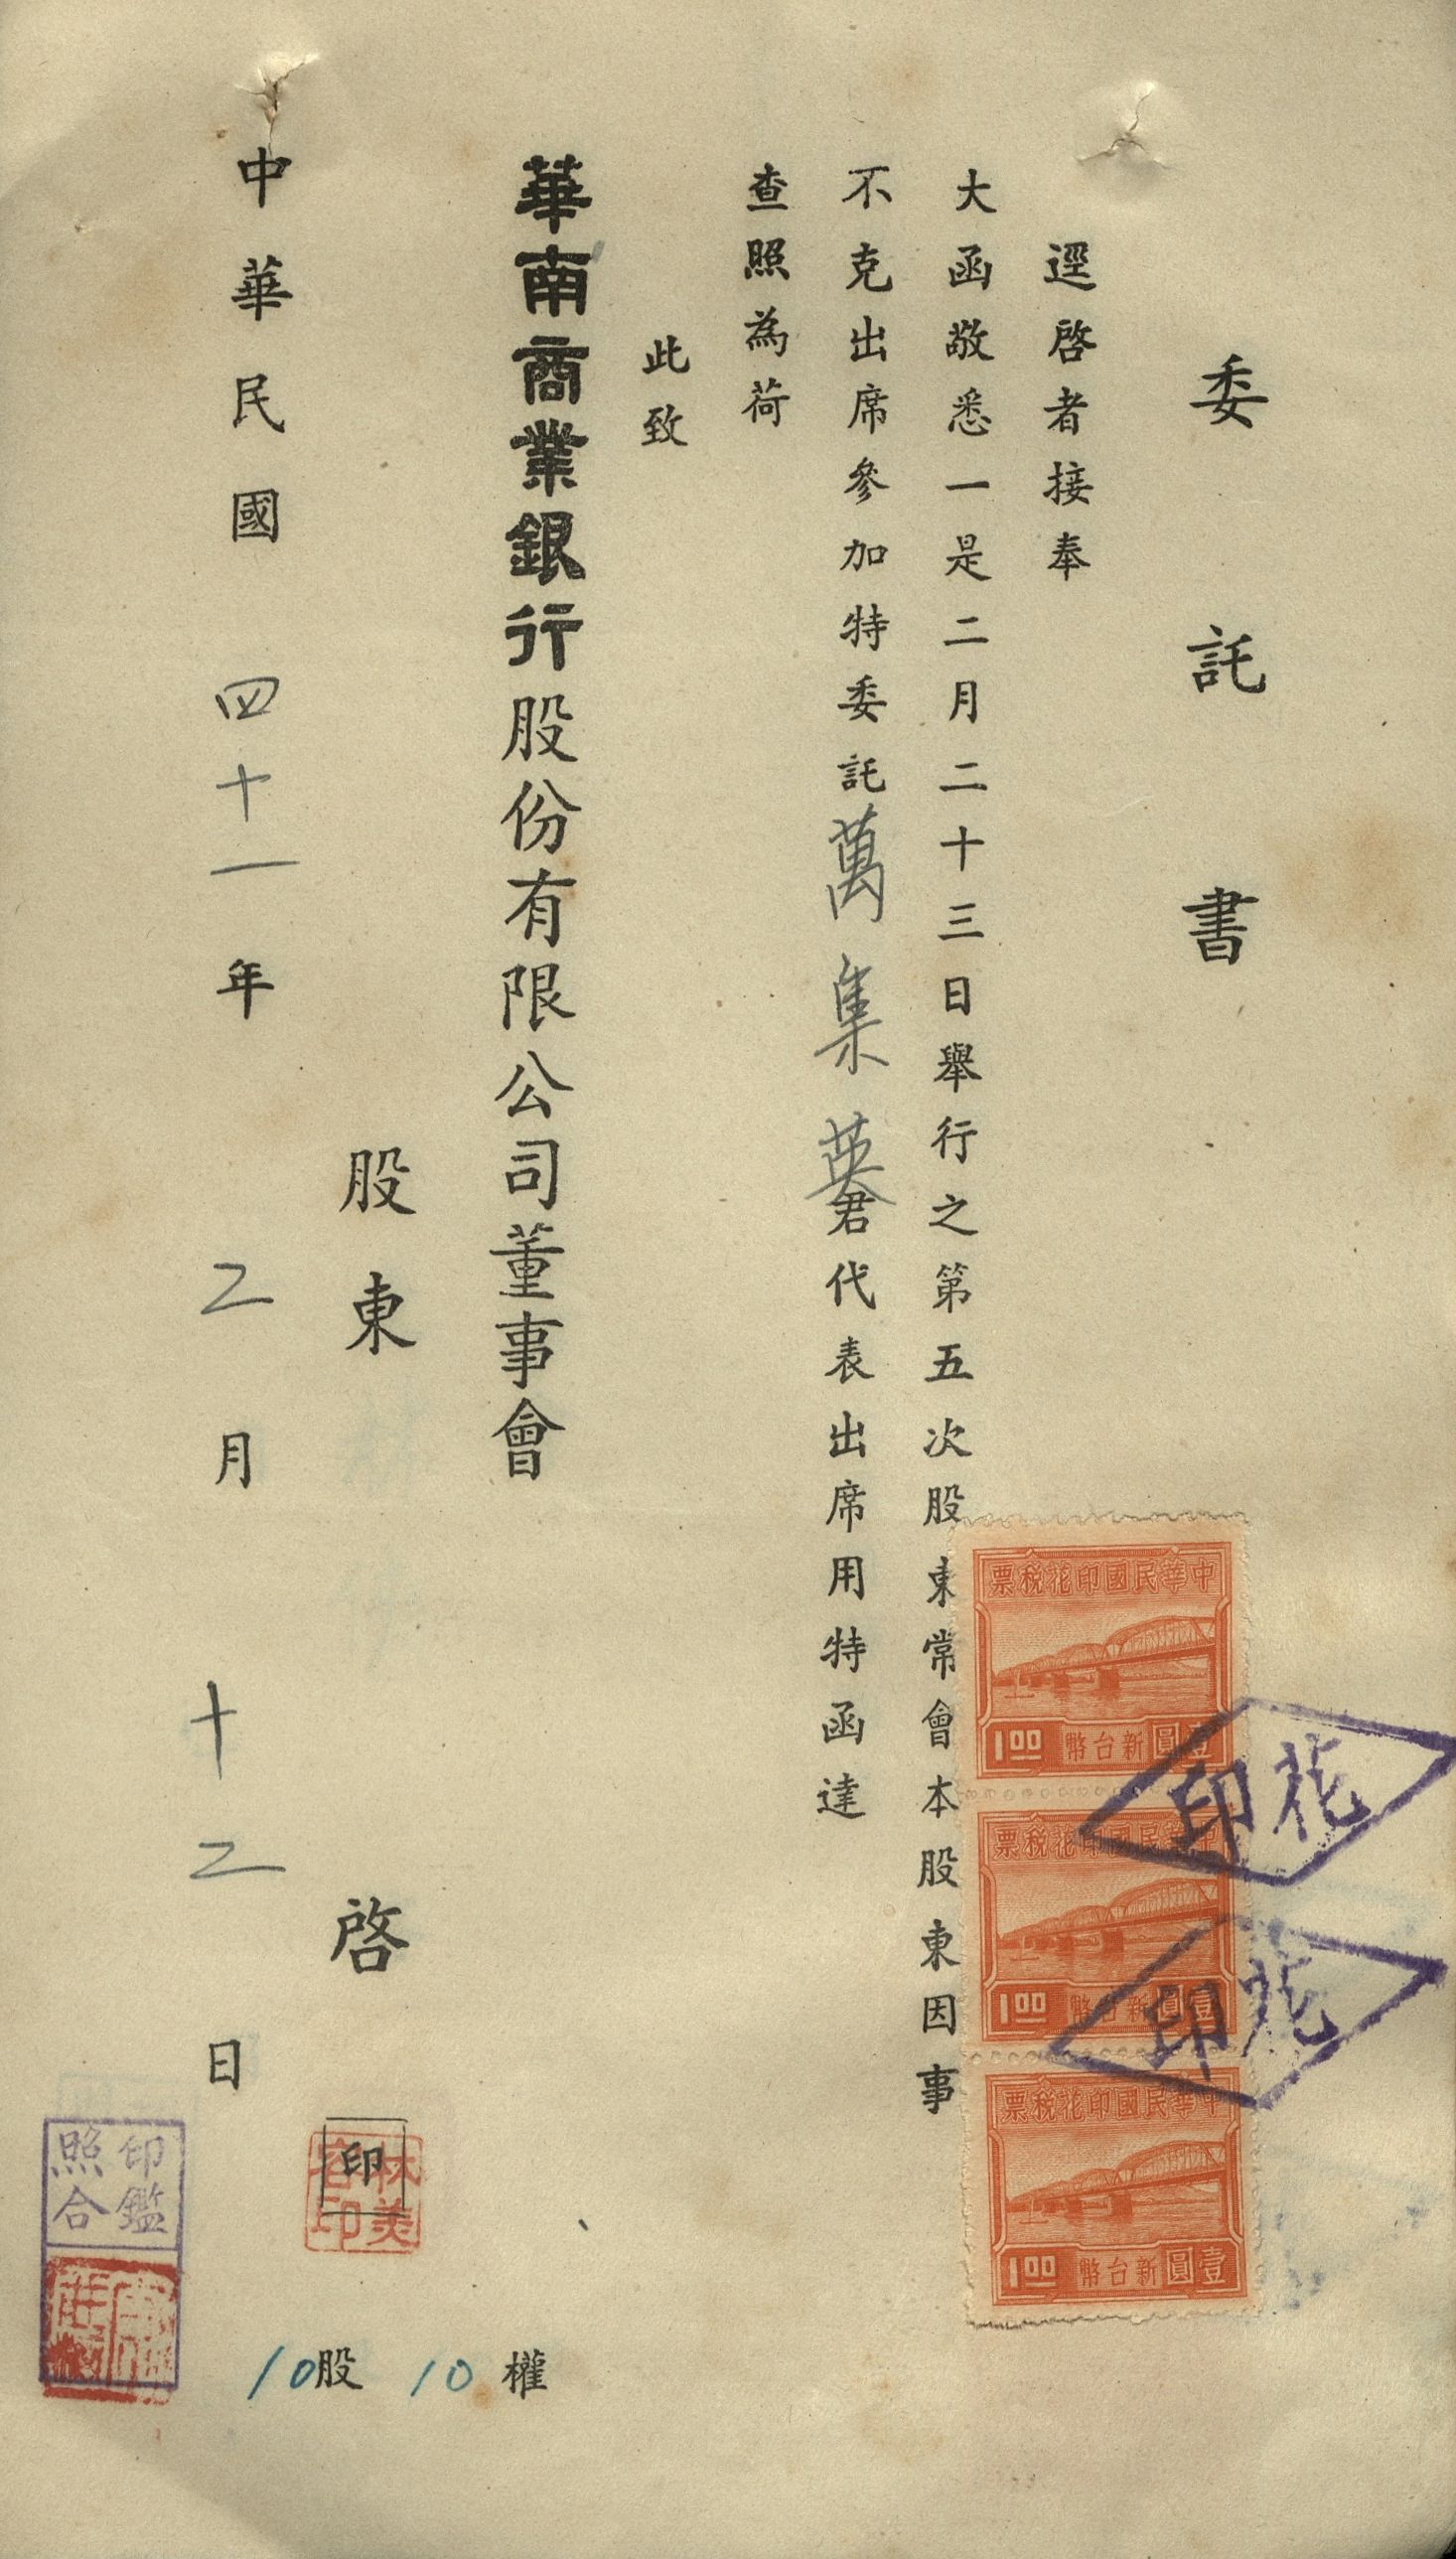 委託書
逕啓者接奉
大函敬悉一是二月二十三日舉行之第五次股東常會本股東因事
不克出席參加特委託萬集英君代表出席用特函達
查照為荷
此致
華南商業銀行股份有限公司董事會
股東 啓 印
林美容印
中華民國 四十一年 二月 十二日
10股 10權
印鑑
照合
中華民國印花稅票
壹圓新台幣 1.00
中華民國印花稅票
壹圓新台幣 1.00
中華民國印花稅票
壹圓新台幣 1.00
花印
花印